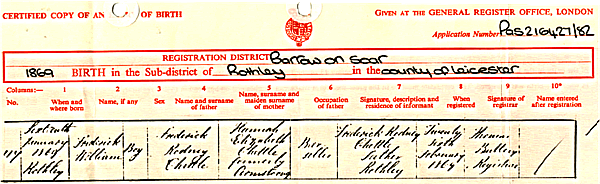 CERTIFIED COPY OF AN OF BIRTH
GIVEN AT THE GENERAL REGISTER OFFICE, LONDON
Application Number PAS216427/82
REGISTRATION DISTRICT Barrow on Soar
1869 BIRTH in the Sub-district of Rothley in the county of Leicester
Columns:— 1 2 3 4 5 6 7 8 9 10*
No. When and where born Name, if any Sex Name and surname of father Name, surname and maiden surname of mother Occupation of father Signature, description and residence of informant When registered Signature of registrar Name entered after registration
Sixteenth January 1869 Rothley
Frederick William
Boy
Frederick Rodney Chettle
Hannah Elizabeth Chettle formerly Armstrong
Frederick Rodney Chettle Father Rothley
February 1869
Thomas Registrar